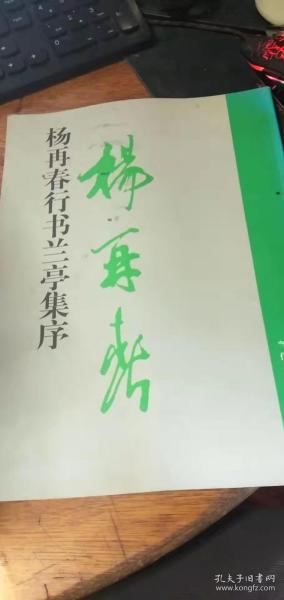 杨再春行书兰亭集序
楊再春
孔夫子旧书网
kongfz.com